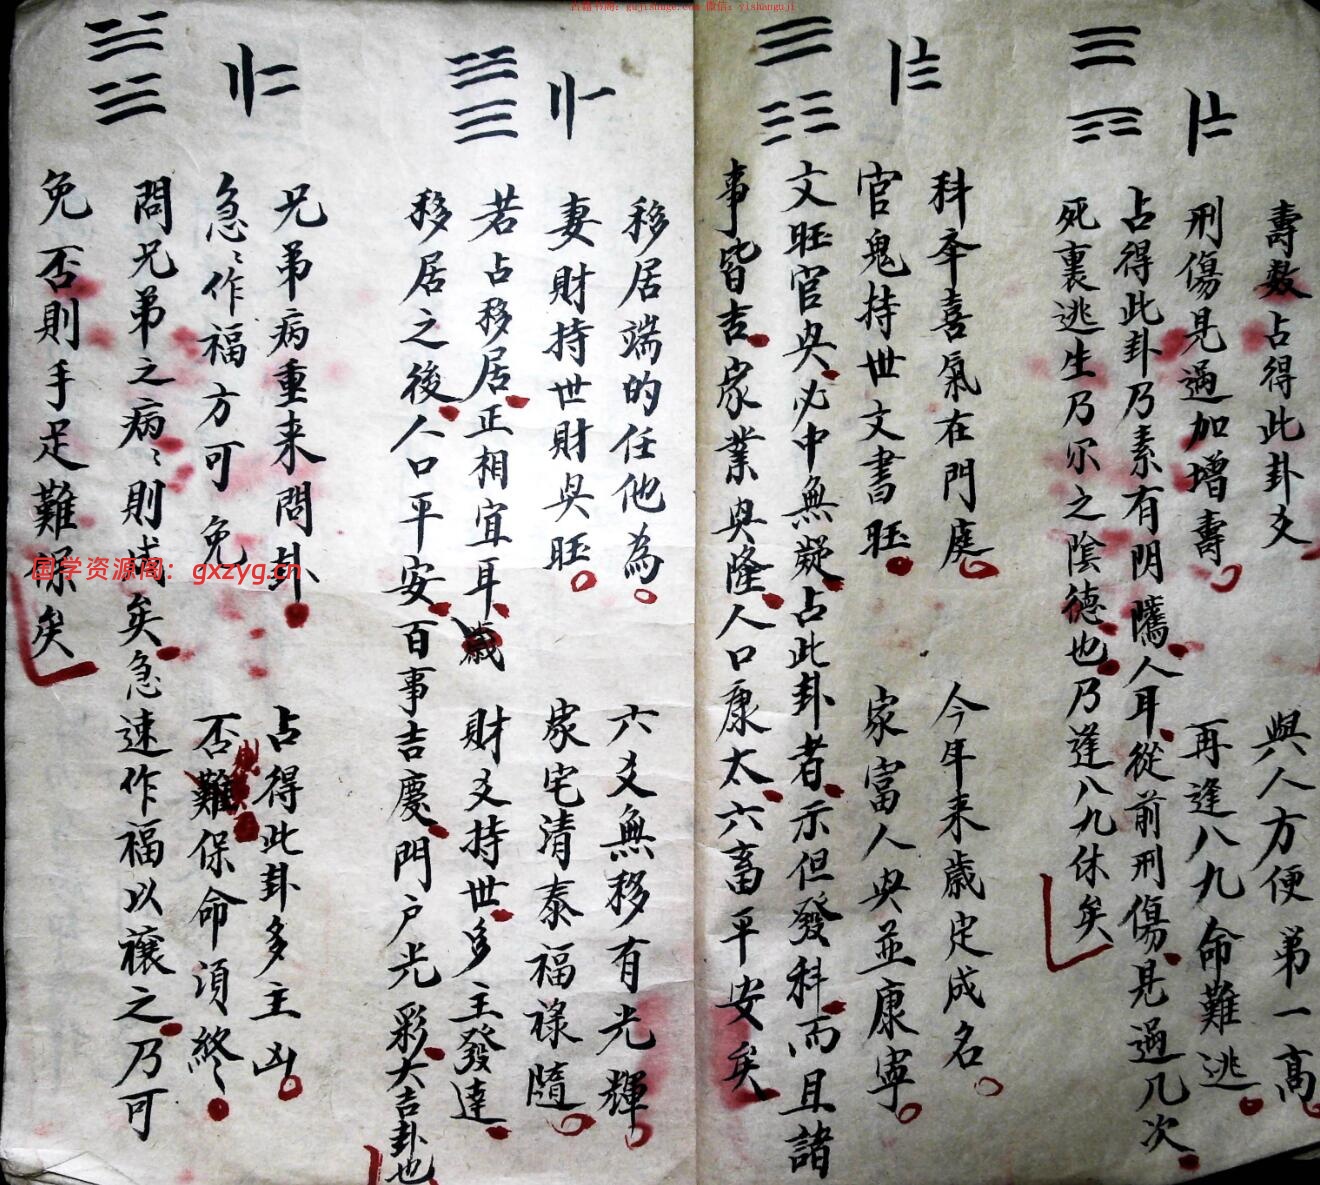 古籍书阁：gujishuge.com 微信：yishanguji
壽数占得此卦爻　與人方便第一高
刑傷見過加增壽　再逢八九命難逃
占得此卦乃素有阴隲人耳從前刑傷見過几次
死裏逃生乃尔之陰德也乃逢八九休矣
科年喜氣在門庭　今年来歲定成名
官鬼持世文書旺　家富人央並康寧
文旺官央必中無凝占此卦者示但發科而且諸
事皆吉家業央隆人口康太六畜平安矣
移居端的任他為　六爻無移有光輝
妻財持世財央旺　家宅清泰福祿隨
若占移居正相宜耳歲財爻持世多主發達
移居之後人口平安百事吉慶門户光彩大吉卦也
兄弟病重来問卦　占得此卦多主凶
急〻作福方可免　否則難保命須終〻
問兄弟之病〻則成矣急速作福以禳之乃可
免否則手足難保矣
国学资源阁：gxzyg.cn